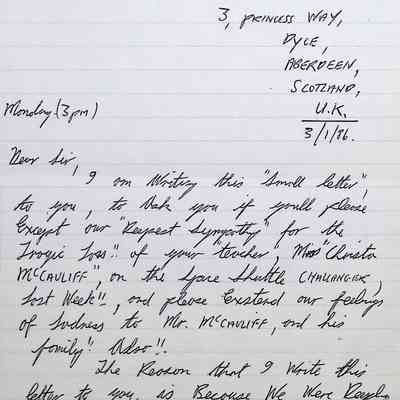 3, PRINCESS WAY,
DYCE,
ABERDEEN,
SCOTLAND,
U.K.
Monday. (3pm)
3/1/86.
Dear Sir,
I am Writing this "Small letter",
to you, to Ask you if you'll please
Except our "Deepest Sympathy" for the
Tragic Loss"!! of your "teacher, Mrs "Christa
McCAULIFF", on the Space Shuttle CHALLANGER,
Last Week"!!, and please Extend our feelings
of Sadness to Mr. McCAULIFF, and his
family"! Also"!!.
The Reason that I Write this
letter to you, is Because We Were